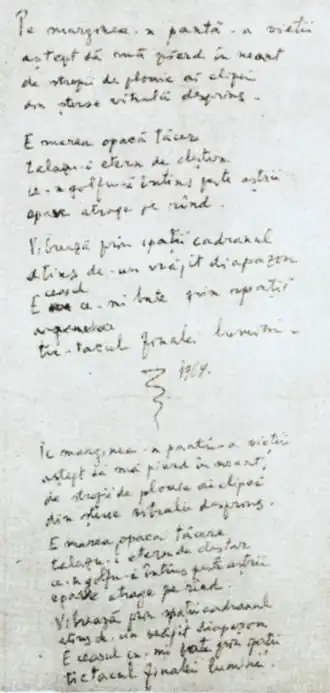 Pe marginea-n pantă-a vieții
aștept să mă pierd în neant
de stropii de ploaie ai clipei
din șterse vitralii desprins.
E marea opacă tăcere
talazu-i etern de cleștar
ce-n golfu-i întins peste aștrii
epave atrage pe rând.
Vibrează prin spații cadranul
atins de-un vrăjit diapazon
E ceasul ce-mi bate prin spații
tic-tacul finalei lumini.
1964.
Pe marginea-n pantă-a vieții
aștept să mă pierd în neant,
de stropii de ploaie ai clipei
din șterse vitralii desprins.
E marea opaca tăcere
talazu-i etern de cleștar
ce-n golfu-i întins peste aștrii
epave atrage pe rând.
Vibrează prin spații cadranul
atins de-un vrăjit diapazon
E ceasul ce-mi bate prin spații
tic tacul finalei lumini.